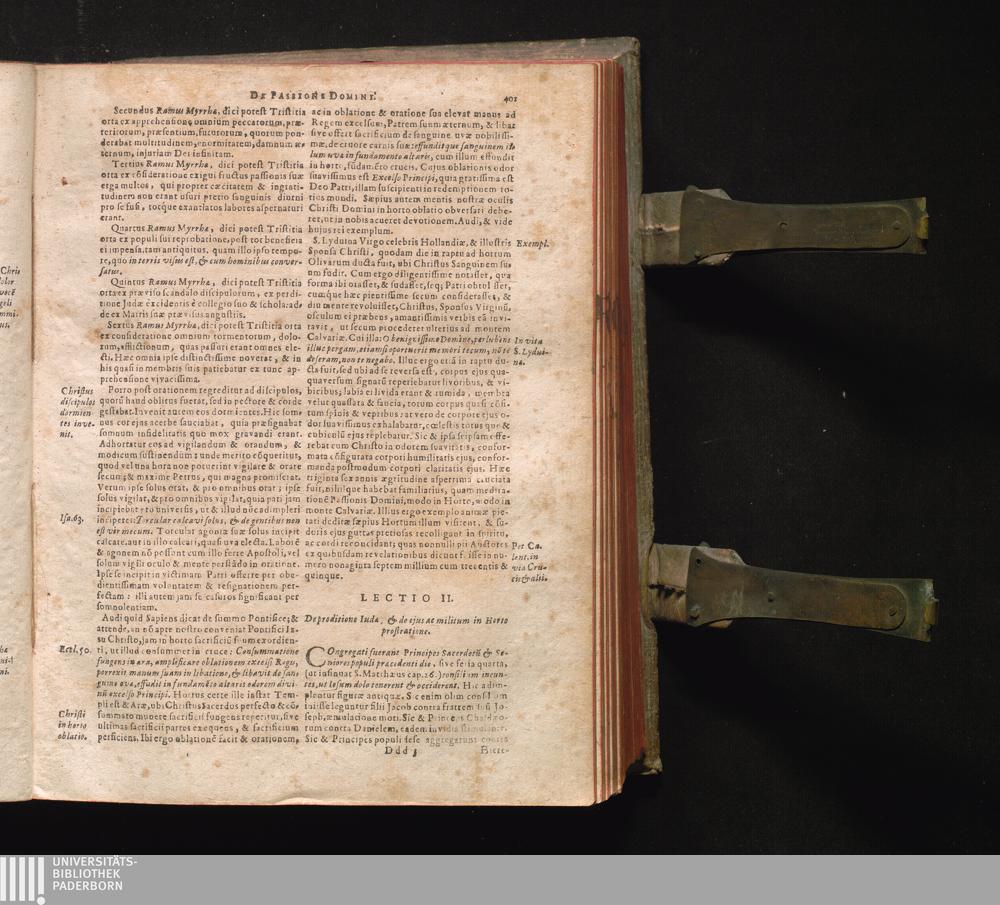 DE PASSIONE DOMINI.
401
Secundus Ramus Myrrhæ, dici potest Tristitia
orta ex apprehensione omnium peccatorum, præ-
teritorum, præsentium, futurorum, quorum pon-
derabat multitudinem, enormitatem, damnum æ-
ternum, injuriam Dei infinitam.
Tertius Ramus Myrrhæ, dici potest Tristitia
orta ex cõsideratione exigui fructus passionis suæ
erga multos, qui propter cæcitatem & ingrati-
tudinem non erant usuri pretio sanguinis diurni
pro se fusi, totque exantlatos labores aspernaturi
erant.
Quartus Ramus Myrrhæ, dici potest Tristitia
orta ex populi sui reprobatione, post tot beneficia
ei impensa, tam antiquitus, quam illo ipso tempo-
re, quo in terris visus est, & cum hominibus conver-
satus.
Quintus Ramus Myrrhæ, dici potest Tristitia
orta ex præviso scandalo discipulorum, ex perdi-
tione Judæ excidentis è collegio suo & schola: ad-
de ex Matris suæ prævisis angustiis.
Sextus Ramus Myrrhæ, dici potest Tristitia orta
ex consideratione omnium tormentorum, dolo-
rum, afflictionum, quas passuri erant omnes ele-
cti. Hæc omnia ipse distinctissime noverat, & in
his quasi in membris suis patiebatur ex tunc ap-
prehensione vivacissima.
Christus
discipulos
dormien-
tes inve-
nit.
Porro post orationem regreditur ad discipulos,
quorũ haud oblitus fuerat, sed in pectore & corde
gestabat. Invenit autem eos dormientes. Hic som-
nus cor ejus acerbe sauciabat, quia præsignabat
somnum infidelitatis quo mox gravandi erant.
Adhortatur eos ad vigilandum & orandum, &
modicum sustinendum: unde merito cõqueritur,
quod vel una hora non potuerint vigilare & orare
secum; & maxime Petrus, qui magna promiserat.
Verum ipse solus orat, & pro omnibus orat; ipse
solus vigilat, & pro omnibus vigilat, quia pati jam
incipiebat pro universis, ut & illud nõc adimpleri
Isa. 63.
inciperet: Torcular calcavi solus, & de gentibus non
est vir mecum. Torcular agoniæ suæ solus incipit
calcare, aut in illo calcari, quasi uva electa. Laborẽ
& agonem nõ possunt cum illo ferre Apostoli, vel
solum vigili oculo & mente persistẽdo in oratione.
Ipse se incipit in victimam Patri offerre per obe-
dientissimam voluntatem & resignationem per-
fectam: illi autem jam se casuros significant per
somnolentiam.
Audi quid Sapiens dicat de summo Pontifice; &
attende, an nõ apte nostro conveniat Pontifici Je-
su Christo, jam in horto sacrificiũ suum exordien-
Eccl. 50.
ti, ut illud consummet in cruce: Consummatione
fungens in ara, amplificare oblationem excelsi Regis,
porrexit manum suam in libatione, & libavit de san-
guine uva, effudit in fundamẽto altaris odorem divi-
nũ excelso Principi. Hortus certe ille instar Tem-
pli est & Aræ, ubi Christus Sacerdos perfecto & cõ-
Christi
in horto
oblatio.
summato munere sacrificii fungens reperitur, sive
ultimas sacrificii partes exequens, & sacrificium
perficiens. Ibi ergo oblationẽ facit & orationem,
ac in oblatione & oratione sua elevat manus ad
Regem excelsum, Patrem summæternum, & libat
sive offert sacrificium de sanguine uvæ nobilissi-
mæ, de cruore carnis suæ: effunditque sanguinem il-
lum uvæ in fundamento altaris, cum illum effundit
in horto, fũdamẽto crucis. Cujus oblationis odor
suavissimus est Excelso Principi, quia gratissima est
Deo Patri, illam suscipienti in redemptionem to-
tius mundi. Sæpius autem mentis nostræ oculis
Christi Domini in horto oblatio obversari debe-
ret, ut in nobis acueret devotionem. Audi, & vide
hujus rei exemplum.
S. Lyduina Virgo celebris Hollandiæ, & illustris
Exempl.
Sponsa Christi, quodam die in raptu ad hortum
Olivarum ducta fuit, ubi Christus Sanguinem su-
um fudit. Cum ergo diligentissime notasset, qua
forma ibi orasset, & sudasset, seq; Patri obtulisset,
cumque hæc pientissime secum considerasset, &
diu mente revoluisset, Christus, Sponsus Virginũ,
osculum ei præbens, amantissimis verbis eã invi-
tavit, ut secum procederet ulterius ad montem
Calvariæ. Cui illa: O benignissime Domine, perlubens
In vita
S. Lydui-
na.
illuc pergam, etiamsi oportuerit me mori tecum, nõ te
deseram, non te negabo. Illuc ergo etiã in raptu du-
cta fuit, sed ubi ad se reversa est, corpus ejus qua-
quaversum signatũ reperiebatur livoribus, & vi-
bicibus; labia ei livida erant & tumida, membra
velut quassata & saucia, totum corpus quasi cõfi-
tum spinis & vepribus: at vero de corpore ejus o-
dor suavissimus exhalabatur, cœlestis totus que &
cubiculũ ejus replebatur. Sic & ipsa seipsam offe-
rebat cum Christo in odorem suavitatis, confor-
mata cõfigurata corpori humilitatis ejus, confor-
manda postmodum corpori claritatis ejus. Hæc
triginta sex annis ægritudine asperrima cruciata
fuit, nihilque habebat familiarius, quam medita-
tionẽ Passionis Domini, modo in Horto, modo in
monte Calvariæ. Illius ergo exemplo animæ pie-
tati deditæ sæpius Hortum illum visitent, & su-
doris ejus guttas pretiosas recolligant in spiritu,
ac cordi recondant; quas nonnulli pii Auctores
Per Ca.
lent. in
via Cru-
cis & alii.
ex quibusdam revelationibus dicunt fuisse in nu-
mero nonaginta septem millium cum trecentis &
quinque.
LECTIO II.
De proditione Iuda, & de ejus ac militum in Horto
prostratione.
COngregati fuerant Principes Sacerdotũ & Se-
niores populi præcedenti die, sive feria quarta,
(ut insinuat S. Matthæus cap. 26.) consilium ineun-
tes, ut Iesum dolo tenerent & occiderent. Hic adim-
plentur figuræ antiquæ. Sic enim olim consilium
iniisse leguntur filii Jacob contra fratrem suũ Jo-
seph, æmulatione moti. Sic & Principes Chaldæo-
rum contra Danielem, eadem invidia stimulante.
Sic & Principes populi sese aggregarant contra
Ddd 3
Chris
voce
geli
mmi-
us.
UNIVERSITÄTS-
BIBLIOTHEK
PADERBORN